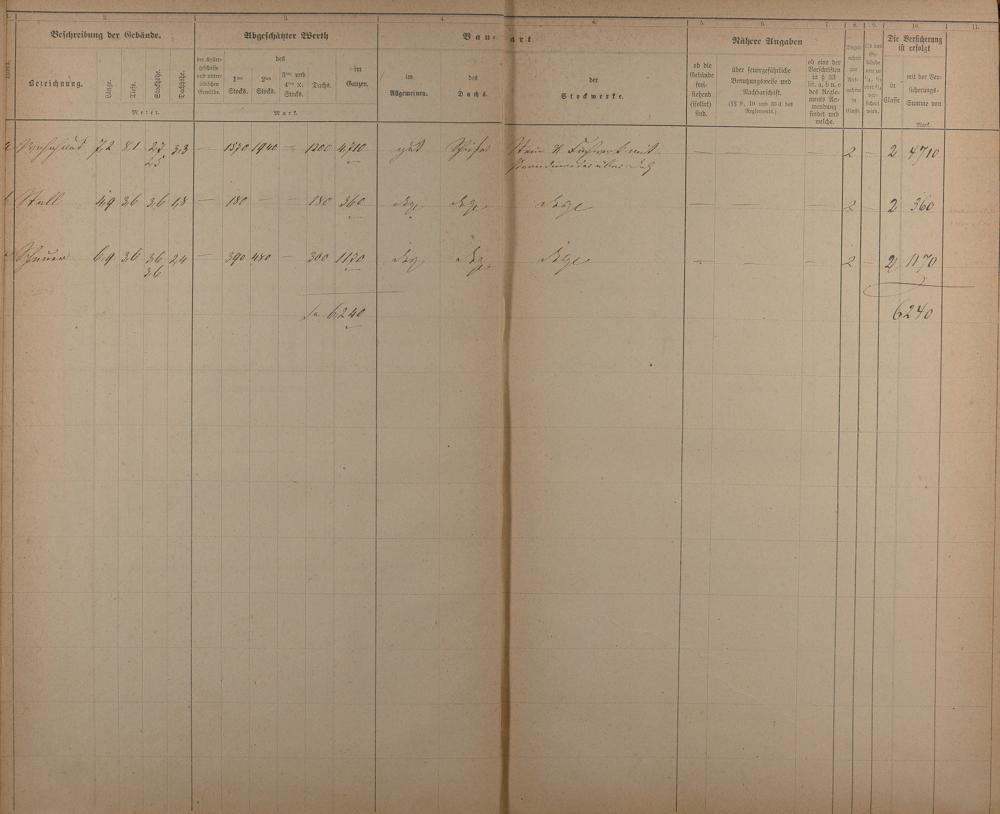 2. 3. 4. 4. 5. 6. 7. 8. 9. 10. 11.
Beschreibung der Gebäude. Abgeschätzter Werth Bau- art Nähere Angaben Die Versicherung ist erfolgt
Bezeichnung. Länge. Tiefe. Stockhöhe. Dachhöhe.
Meter.
des
1ten Stocks. 2ten Stocks. 3ten und 4ten ꝛc. Stocks. Dachs. im Ganzen.
Mark.
im Allgemeinen. des Dachs. der Stockwerke.
ob die Gebäude frei- stehend (isolirt) sind.
über feuergefährliche Benutzungsweise und Nachbarschaft.
(§§ 9, 10 und 33 d des Reglements.)
ob eine der Vorschriften in § 33 lit. a, b u. c des Regle- ments An- wendung findet und welche.
in Classe mit der Ver- sicherungs- Summe von
Mark.
a Wohnhaus 7,2 8,1 2,7 3,3 — 1570 1940 — 1200 4710 gut Schiefer Stein u. Fachwerk mit — — — 2 — 2 4710
2,5
b Stall 4,9 3,6 3,6 1,8 — 180 — — 180 360 desgl. desgl. desgl. — — — 2 — 2 360
c Scheuer 6,9 3,6 3,6 2,4 — 390 480 — 300 1170 desgl. desgl. desgl. — — — 2 — 2 1170
3,6
Sa 6240 6240